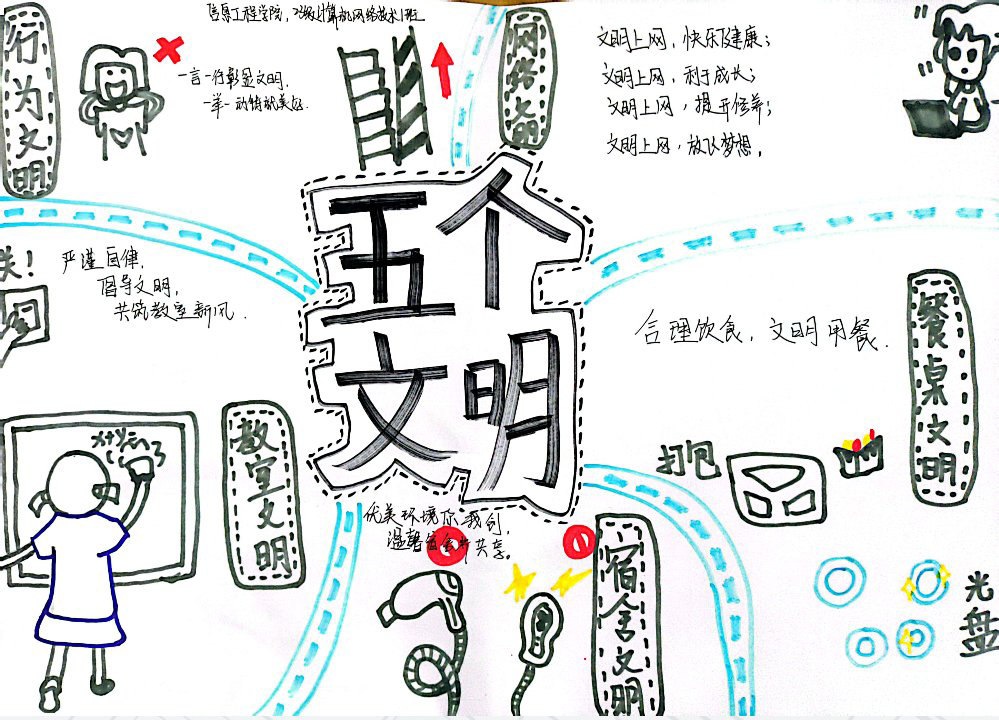 信息工程学院，23级计算机网络技术1班
行为文明
一言一行彰显文明，
一举一动铸就美好.
网络文明
文明上网，快乐健康；
文明上网，利于成长；
文明上网，提升修养；
文明上网，放飞梦想。
五个
文明
失！
严谨自律，
倡导文明，
共筑教室新风.
教室文明
x+y=
合理饮食，文明用餐.
餐桌文明
打包
光盘
优美环境你我创，
温馨宿舍共享。
宿舍文明